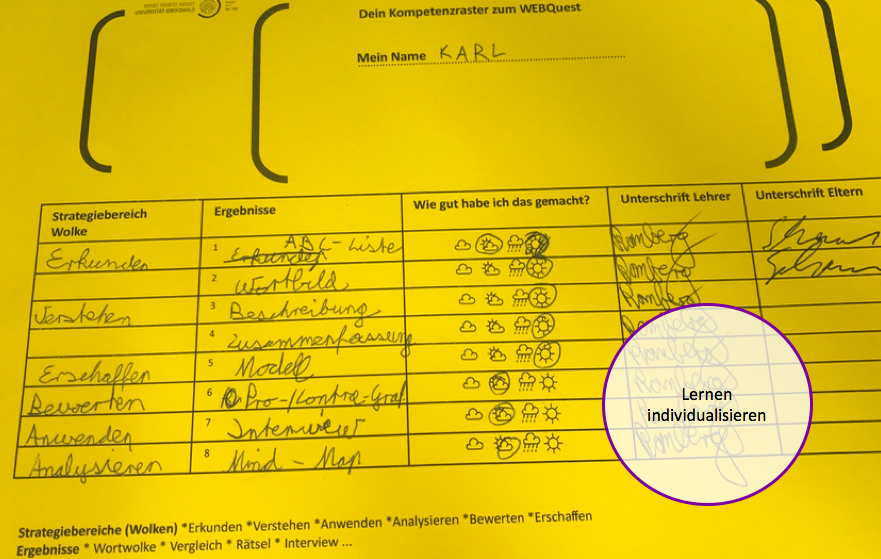 ERNST MORITZ ARNDT
UNIVERSITÄT GREIFSWALD
Dein Kompetenzraster zum WEBQuest
Mein Name KARL
Strategiebereich Wolke Ergebnisse Wie gut habe ich das gemacht? Unterschrift Lehrer Unterschrift Eltern
Erkunden 1 Erkunden ABC-Liste Romberg
2 Wortbild Romberg
Verstehen 3 Beschreibung Romberg
4 Zusammenfassung Romberg
Erschaffen 5 Modell Romberg
Bewerten 6 Pro-/Contra-Graf Romberg
Anwenden 7 Interview
Analysieren 8 Mind-Map Romberg
Lernen
individualisieren
Strategiebereiche (Wolken) *Erkunden *Verstehen *Anwenden *Analysieren *Bewerten *Erschaffen
Ergebnisse * Wortwolke * Vergleich * Rätsel * Interview ...